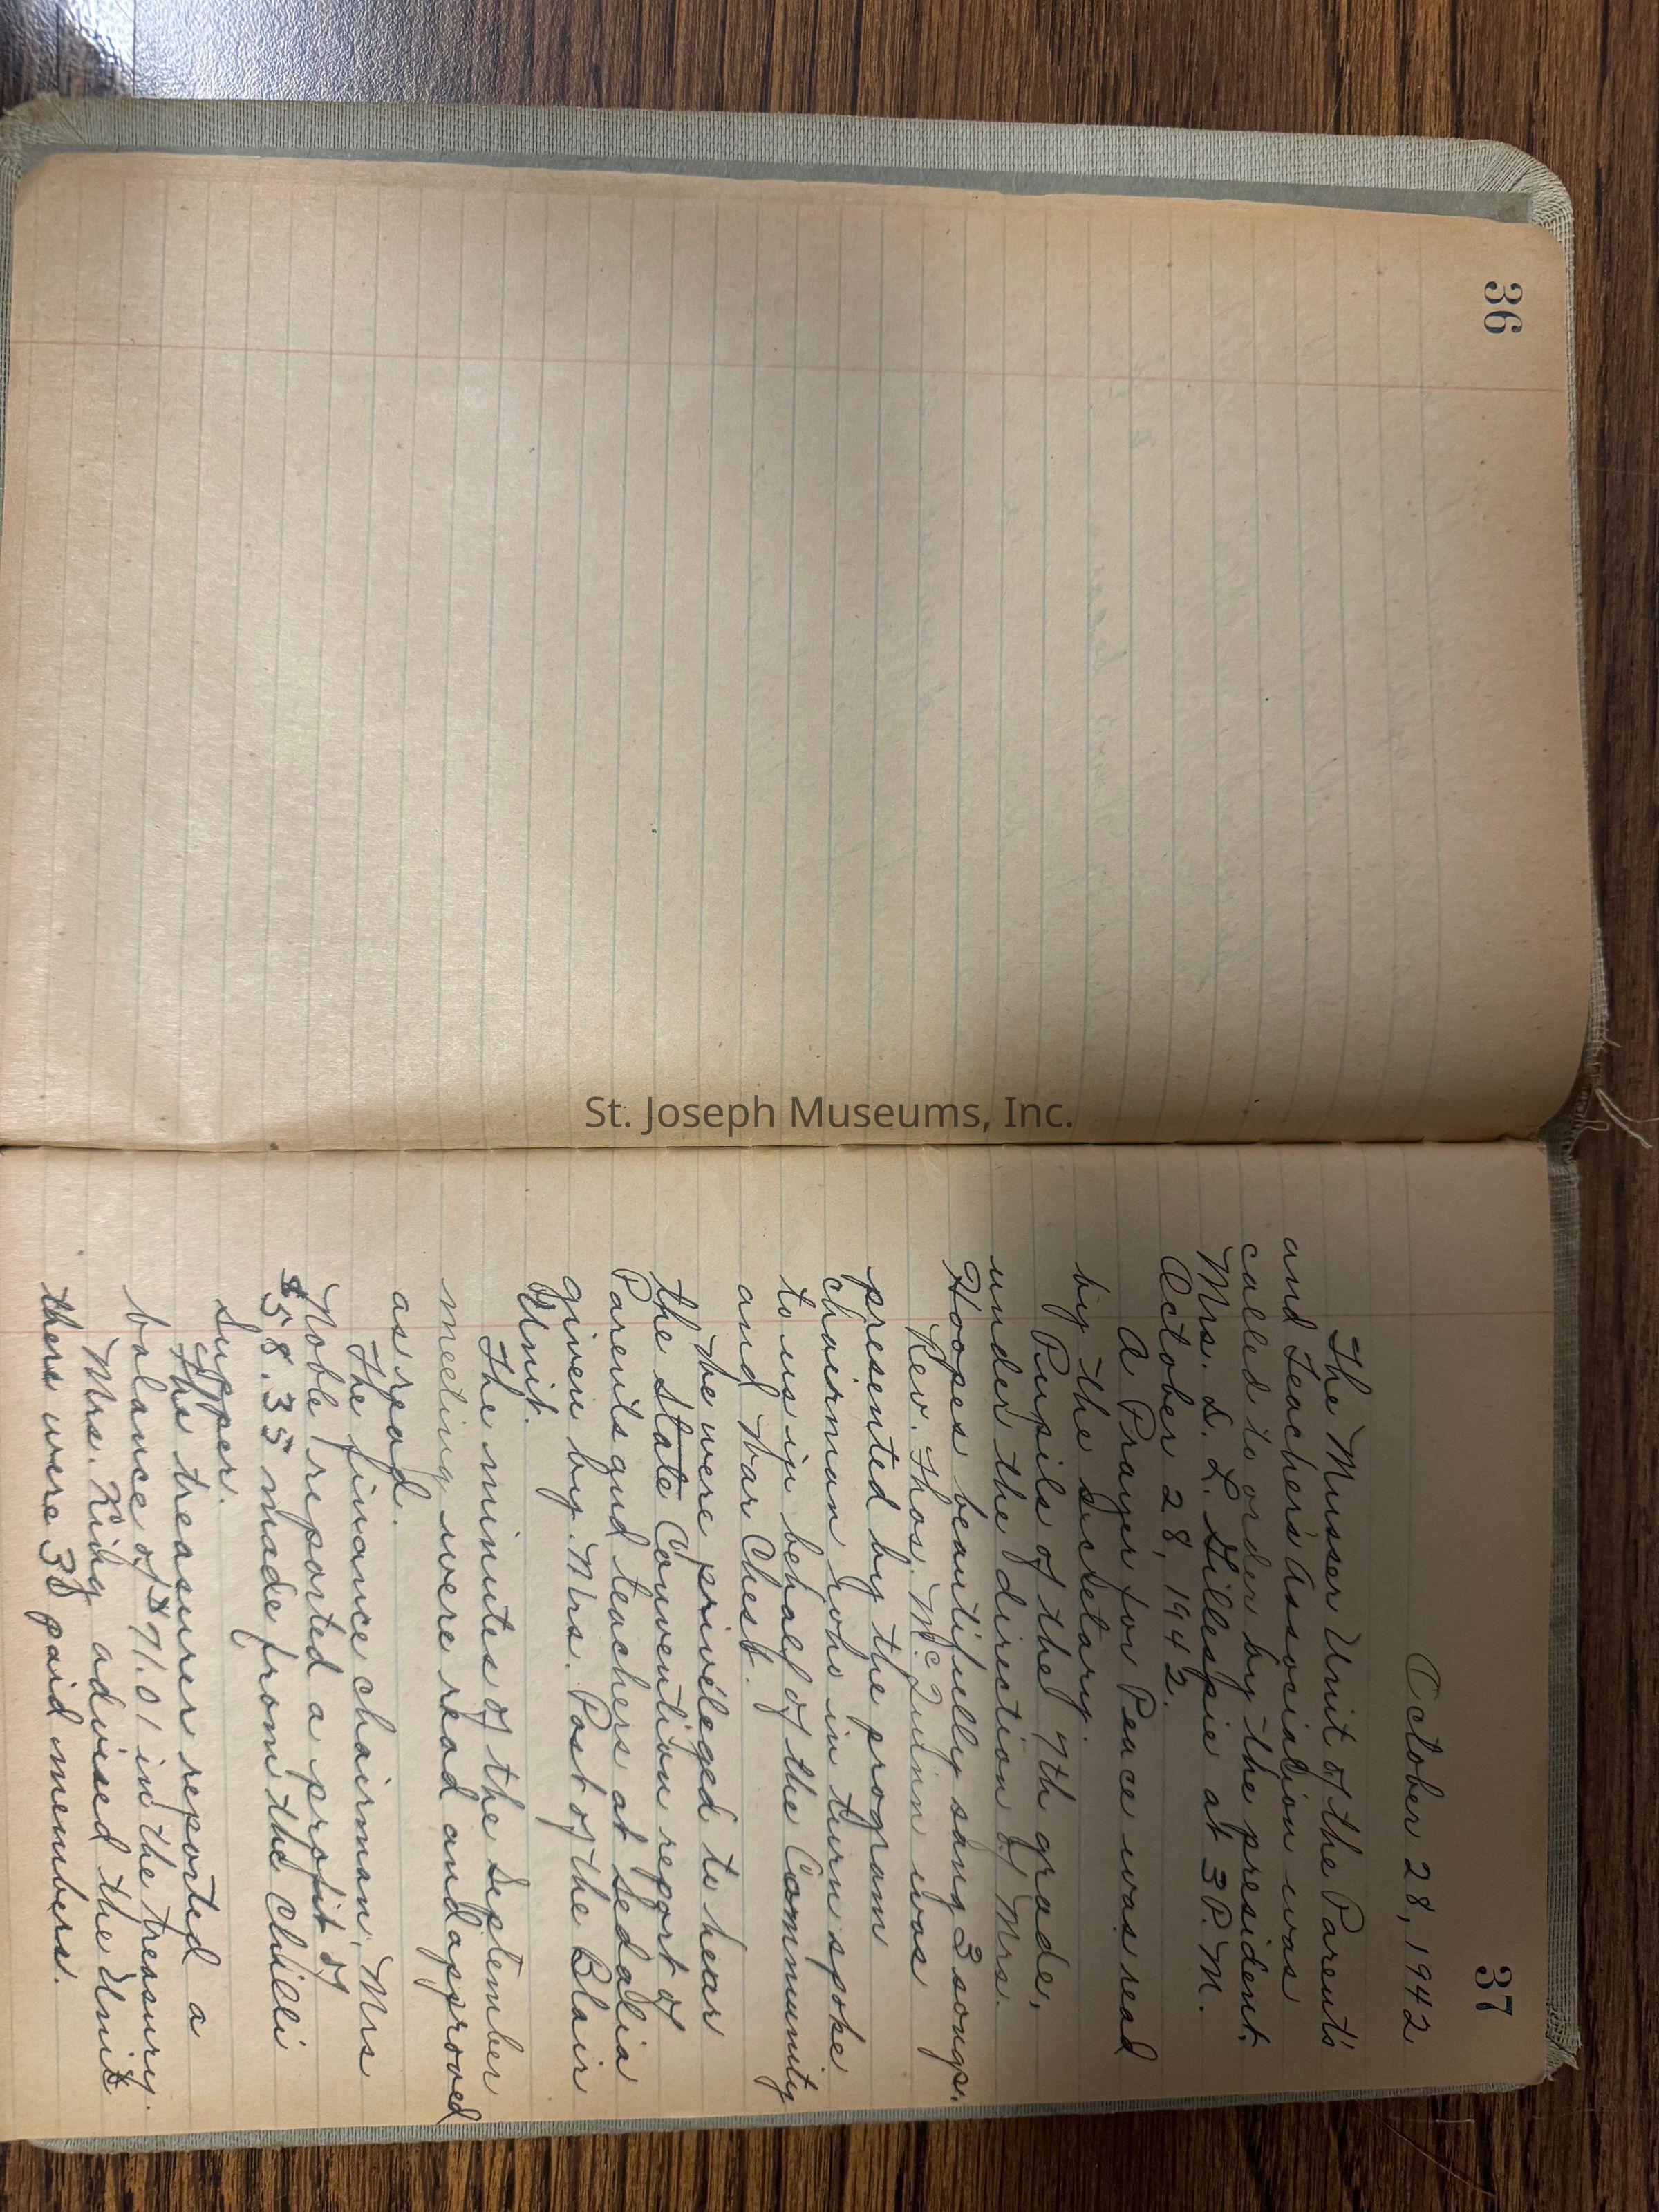 36
37
October 28, 1942
The Musser Unit of the Parents
and Teacher's Association was
called to order by the president,
Mrs. L. L. Gillespie at 3 P.M.
October 28, 1942.
A Prayer for Peace was read
by the secretary.
Pupils of the 7th grade,
under the direction of Mrs.
Hoopes beautifully sang 3 songs.
Rev. Thos. McQuinn was
presented by the program
chairman who in turn spoke
to us in behalf of the Community
and War Chest.
We were privileged to hear
the State Convention report of
Parents and teachers at Sedalia
given by Mrs. Post of the Blair
Unit.
The minutes of the September
meeting were read and approved
as read.
The finance chairman, Mrs
Noble reported a profit of
$58.35 made from the Chilli
Supper.
The treasurer reported a
balance of $71.01 in the treasury.
Mrs. King advised the Unit
there were 38 paid members.
St. Joseph Museums, Inc.